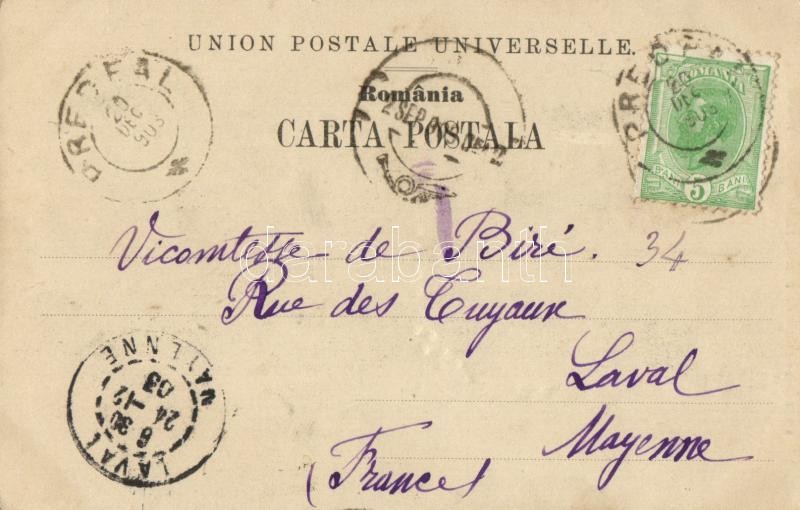 UNION POSTALE UNIVERSELLE.
România
CARTA POSTALA
PREDEAL
20
DEC
903
PREDEAL
20
DEC
903
ROMANIA
BANI 5 BANI
Vicomtesse de Biré. 34
darabanth
Rue des Tuyaux
Laval
Mayenne
(France)
LAVAL
6 30
24 -12
03
MAYENNE